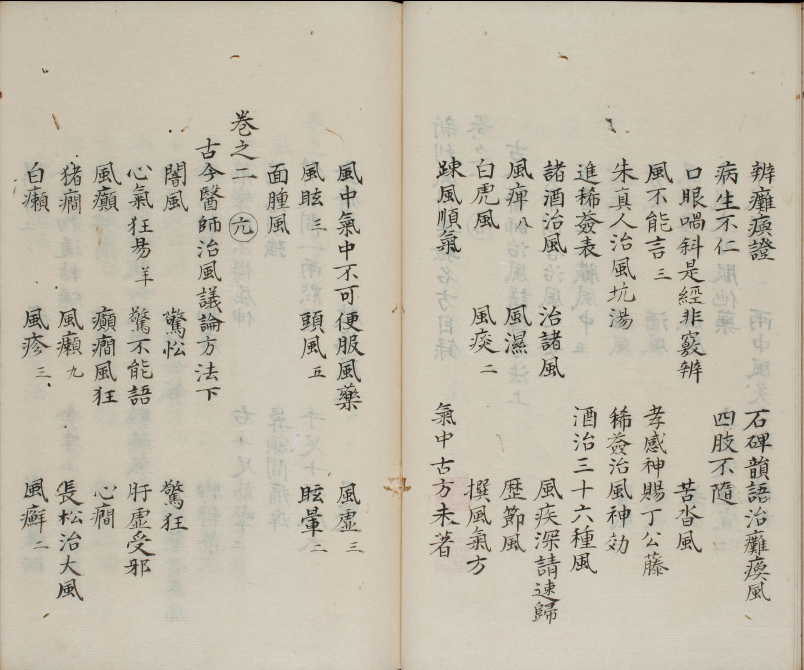 辨癱瘓證 石碑韻語治癱瘓風
病生不仁 四肢不隨
口眼喎斜是經非竅辨
風不能言三 苦沓風
朱真人治風坑湯 孝感神賜丁公藤
進稀薟表 稀薟治風神効
諸酒治風 治諸風 酒治三十六種風
風痺八 風濕 風疾深請速歸
白虎風 風痰二 歴節風
踈風順氣 撰風氣方
氣中古方未著
風中氣中不可便服風藥 風虚三
風眩三 頭風五 眩暈二
面腫風
卷之二 亢
古今醫師治風議論方法下
闇風 驚忪 驚狂
心氣狂易羊 驚不能語 肝虚受邪
風癲 癲癇風狂 心癇
猪癇 風癩九 長松治大風
白癩 風疹三 風癬二